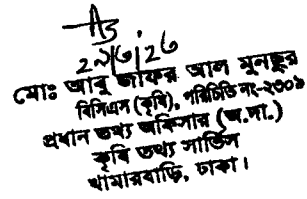 ২৯/৬/২৬
মোঃ আবু জাফর আল মুনছুর
বিসিএস (কৃষি), পরিচিতি নং-২৩০৯
প্রধান তথ্য অফিসার (অ.দা.)
কৃষি তথ্য সার্ভিস
খামারবাড়ি, ঢাকা।